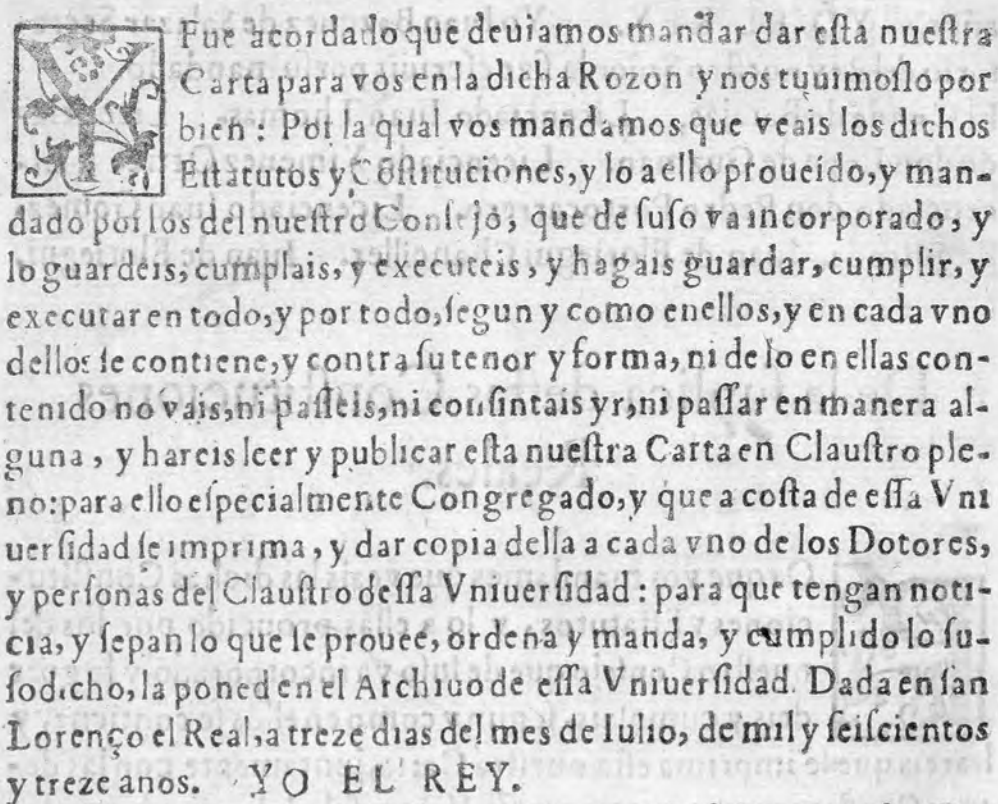 Y Fue acordado que deuiamos mandar dar esta nuestra
Carta para vos en la dicha Rozon y nos tuuimoslo por
bien: Por la qual vos mandamos que veais los dichos
Estatutos y Cōstituciones, y lo a ello proueido, y man-
dado por los del nuestro Consejo, que de suso va incorporado, y
lo guardeis, cumplais, y executeis, y hagais guardar, cumplir, y
executar en todo, y por todo, segun y como enellos, y en cada vno
dellos se contiene, y contra su tenor y forma, ni de lo en ellas con-
tenido no vais, ni passeis, ni consintais yr, ni passar en manera al-
guna, y hareis leer y publicar esta nuestra Carta en Claustro ple-
no: para ello especialmente Congregado, y que a costa de essa Vni
uersidad se imprima, y dar copia della a cada vno de los Dotores,
y personas del Claustro dessa Vniuersidad: para que tengan noti-
cia, y sepan lo que se prouee, ordena y manda, y cumplido lo su-
sodicho, la poned en el Archiuo de essa Vniuersidad. Dada en san
Lorenço el Real, a treze dias del mes de Iulio, de mil y seiscientos
y treze anos. YO EL REY.